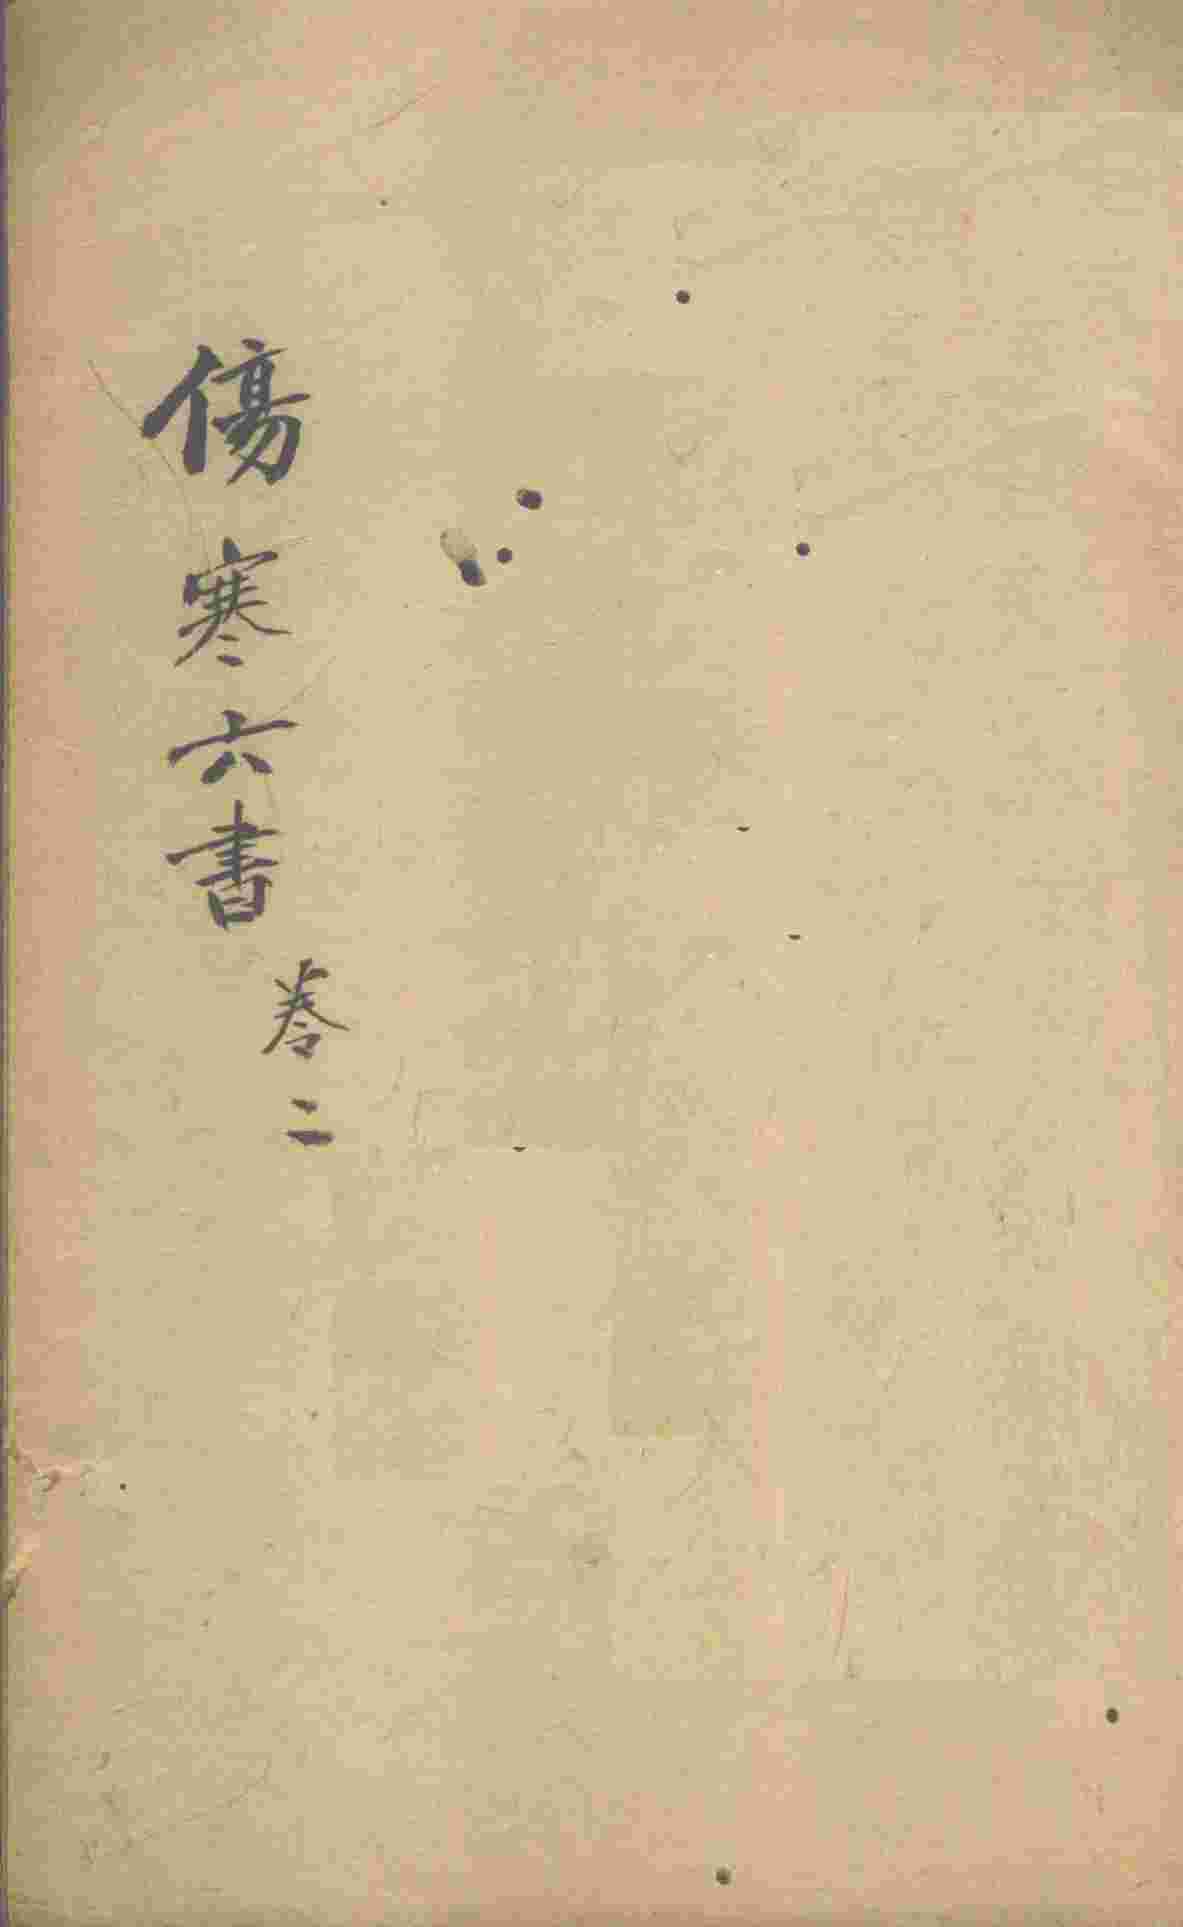 傷寒六書
卷二